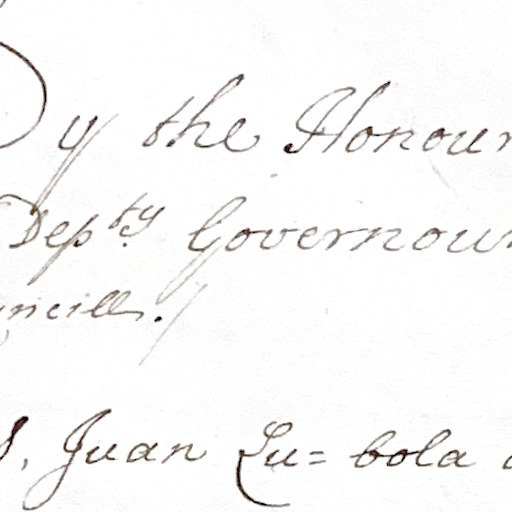 By the Honour
Dep.ty Governour
uncill.
s, Juan Lu= bola